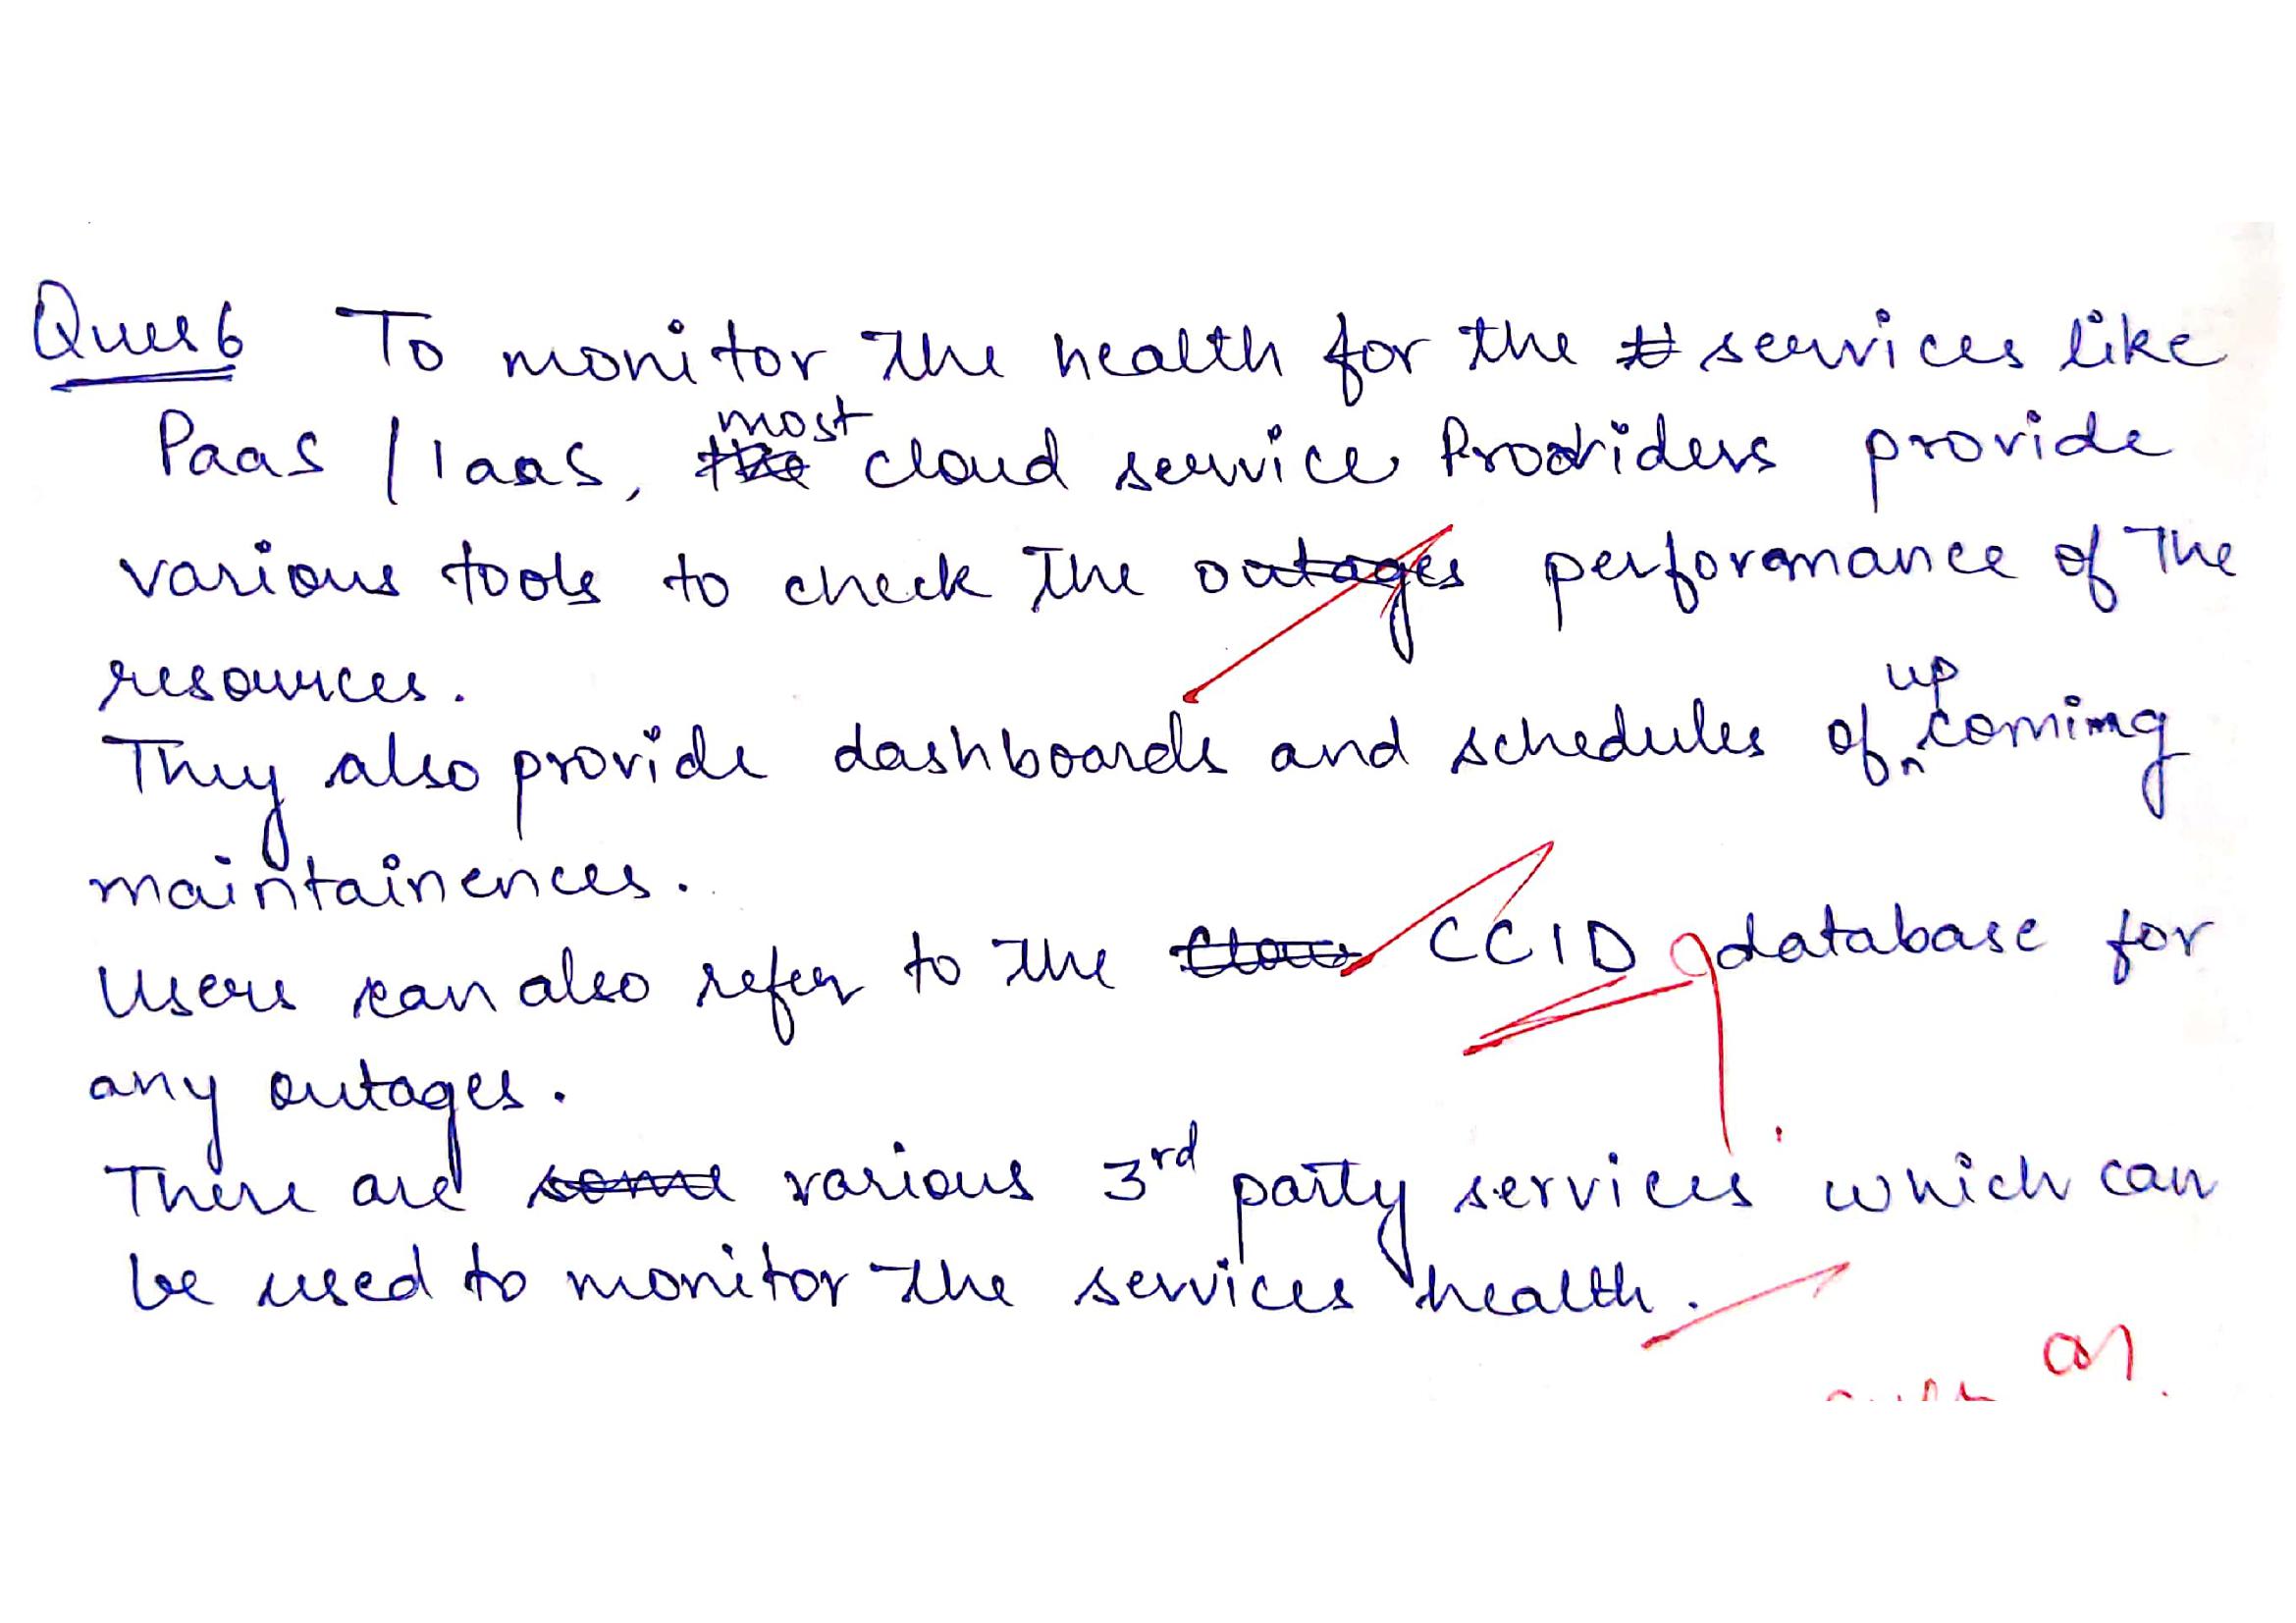 Ques 6 To monitor the health for the services like
Paas / Iaas, most cloud service Providers provide
various tools to check the performance of the
resources.
They also provide dashboards and schedules of upcoming
maintainences.
Users can also refer to the CCID database for
any outages.
There are various 3rd party services which can
be used to monitor the services health.